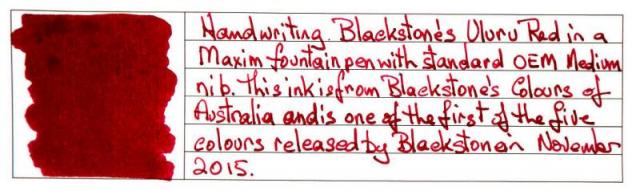 Handwriting. Blackstone's Uluru Red in a
Maxim fountain pen with standard OEM Medium
nib. This ink is from Blackstone's Colours of
Australia and is one of the first of the five
colours released by Blackstone in November
2015.